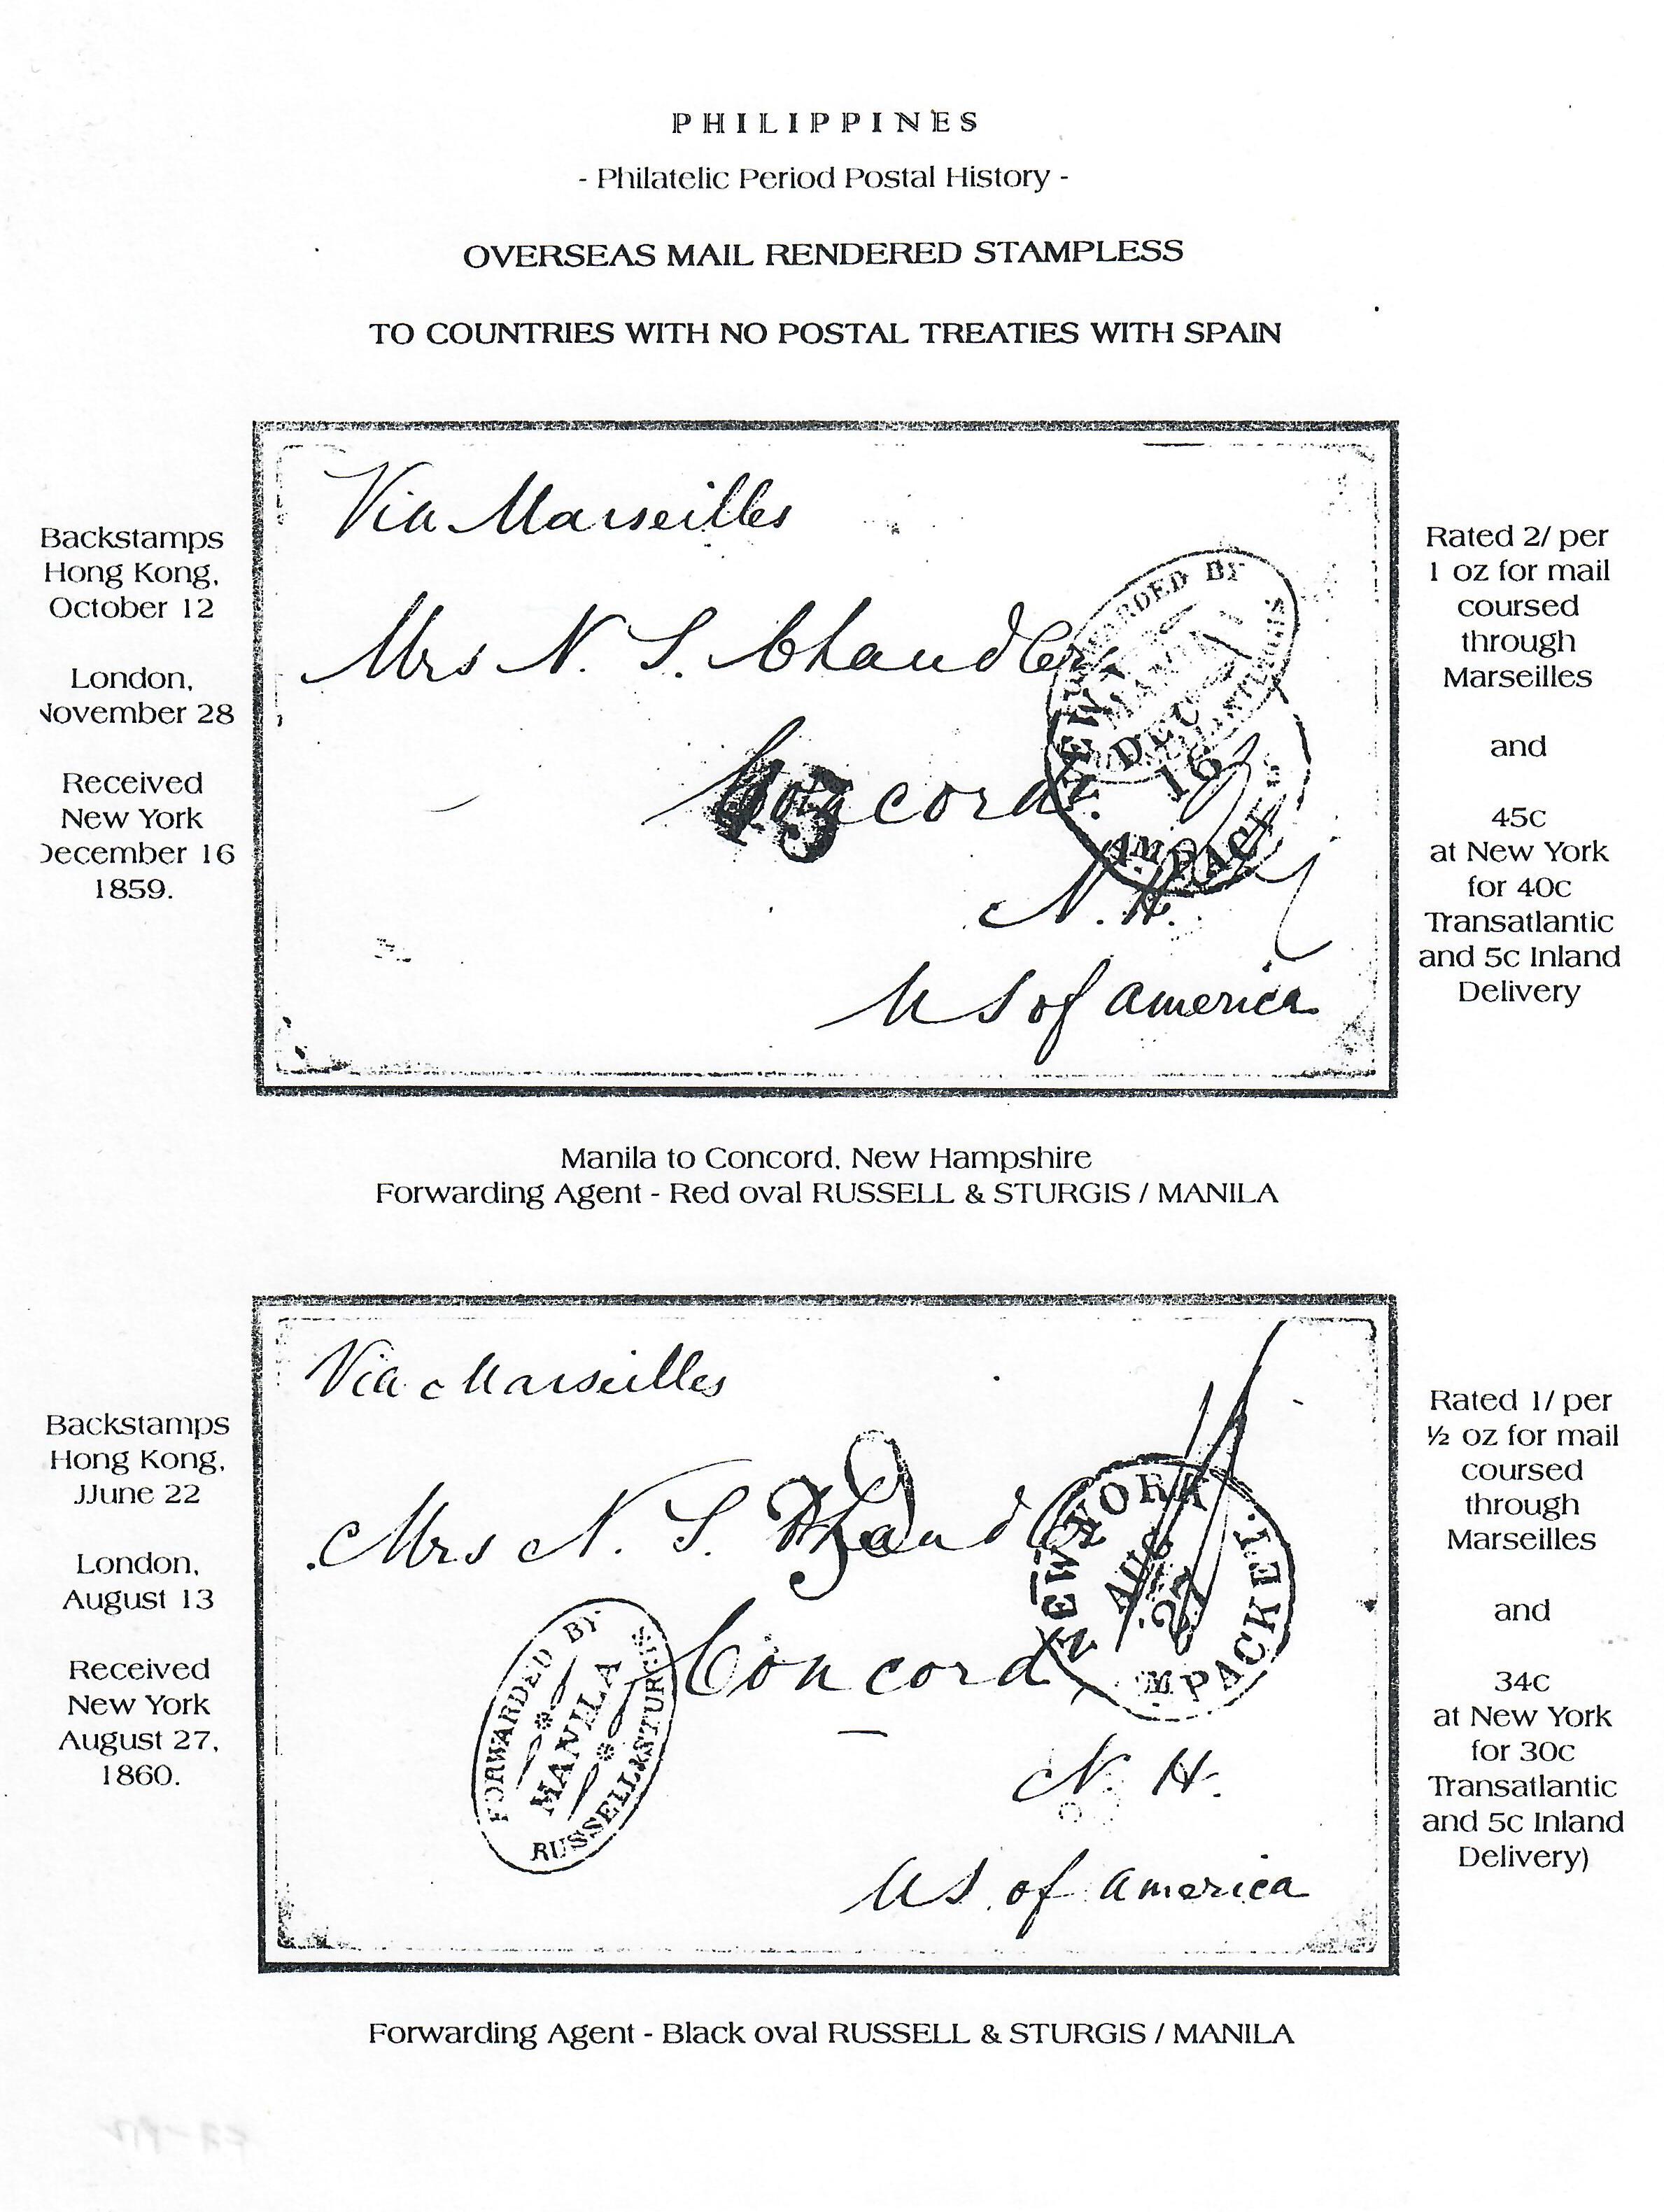 PHILIPPINES
- Philatelic Period Postal History -
OVERSEAS MAIL RENDERED STAMPLESS
TO COUNTRIES WITH NO POSTAL TREATIES WITH SPAIN
Backstamps
Hong Kong,
October 12
London,
November 28
Received
New York
December 16
1859.
Via Marseilles
Mrs N. S. Chandler
Concord.
N. H.
U S of america
FORWARDED BY
MANILA
NEW
DEC
16
AM. PACKET
45
Rated 2/ per
1 oz for mail
coursed
through
Marseilles
and
45c
at New York
for 40c
Transatlantic
and 5c Inland
Delivery
Manila to Concord, New Hampshire
Forwarding Agent - Red oval RUSSELL & STURGIS / MANILA
Backstamps
Hong Kong,
JJune 22
London,
August 13
Received
New York
August 27,
1860.
Via Marseilles
Mrs N. S. Chandler
Concord
N. H.
US. of america
NEW YORK
AUG
27
AM PACKET
FORWARDED BY
MANILA
RUSSELL & STURGIS
Rated 1/ per
½ oz for mail
coursed
through
Marseilles
and
34c
at New York
for 30c
Transatlantic
and 5c Inland
Delivery)
Forwarding Agent - Black oval RUSSELL & STURGIS / MANILA